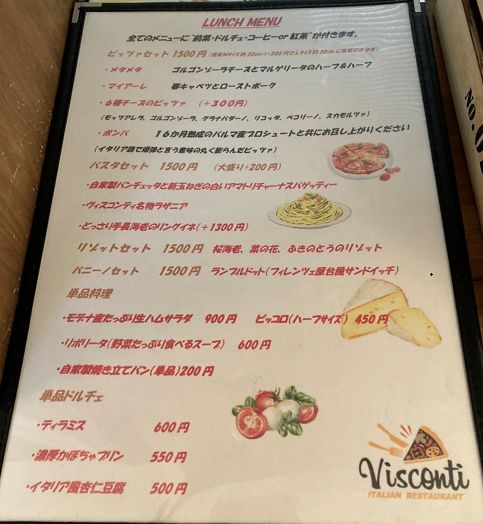 LUNCH MENU
全てのメニューに"前菜・ドルチェ・コーヒーor紅茶"が付きます。
ピッツァセット 1500円
・メタメタ ゴルゴンゾーラチーズとマルゲリータのハーフ&ハーフ
・マイアーレ 春キャベツとローストポーク
・6種チーズのピッツァ (+300円)
(モッツァレラ、ゴルゴンゾーラ、グラナパダーノ、リコッタ、ペコリーノ、スカモルツァ)
・ボンバ 16か月熟成のパルマ産プロシュートと共にお召し上がりください
(イタリア語で爆弾と言う意味の丸く膨らんだピッツァ)
パスタセット 1500円 (大盛り+200円)
・自家製パンチェッタと新玉ねぎの白いアマトリチャーナスパゲッティー
・ヴィスコンティ名物ラザニア
・どっさり手長海老のリングイネ(+1300円)
リゾットセット 1500円 桜海老、菜の花、ふきのとうのリゾット
パニーノセット 1500円 ランプルドット(フィレンツェ屋台風サンドイッチ)
単品料理
・モデナ産たっぷり生ハムサラダ 900円 ピッコロ(ハーフサイズ) 450円
・リボリータ(野菜たっぷり食べるスープ) 600円
・自家製焼き立てパン(単品)200円
単品ドルチェ
・ティラミス 600円
・濃厚かぼちゃプリン 550円
・イタリア風杏仁豆腐 500円
Visconti
ITALIAN RESTAURANT